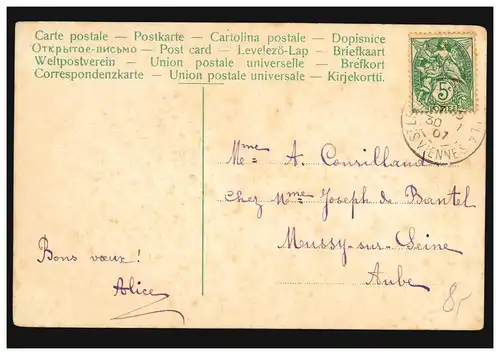 Carte postale — Postkarte — Cartolina postale — Dopisnice
Открытое-письмо — Post card — Levelező-Lap — Briefkaart
Weltpostverein — Union postale universelle — Brefkort
Correspondenzkarte — Union postale universale — Kirjekortti.
5c
30
07
VIENNE
Mme A. Consilland
Chez Mme Joseph de Bantel
Mussy-sur-Seine
Aube
Bons vœux!
Alice